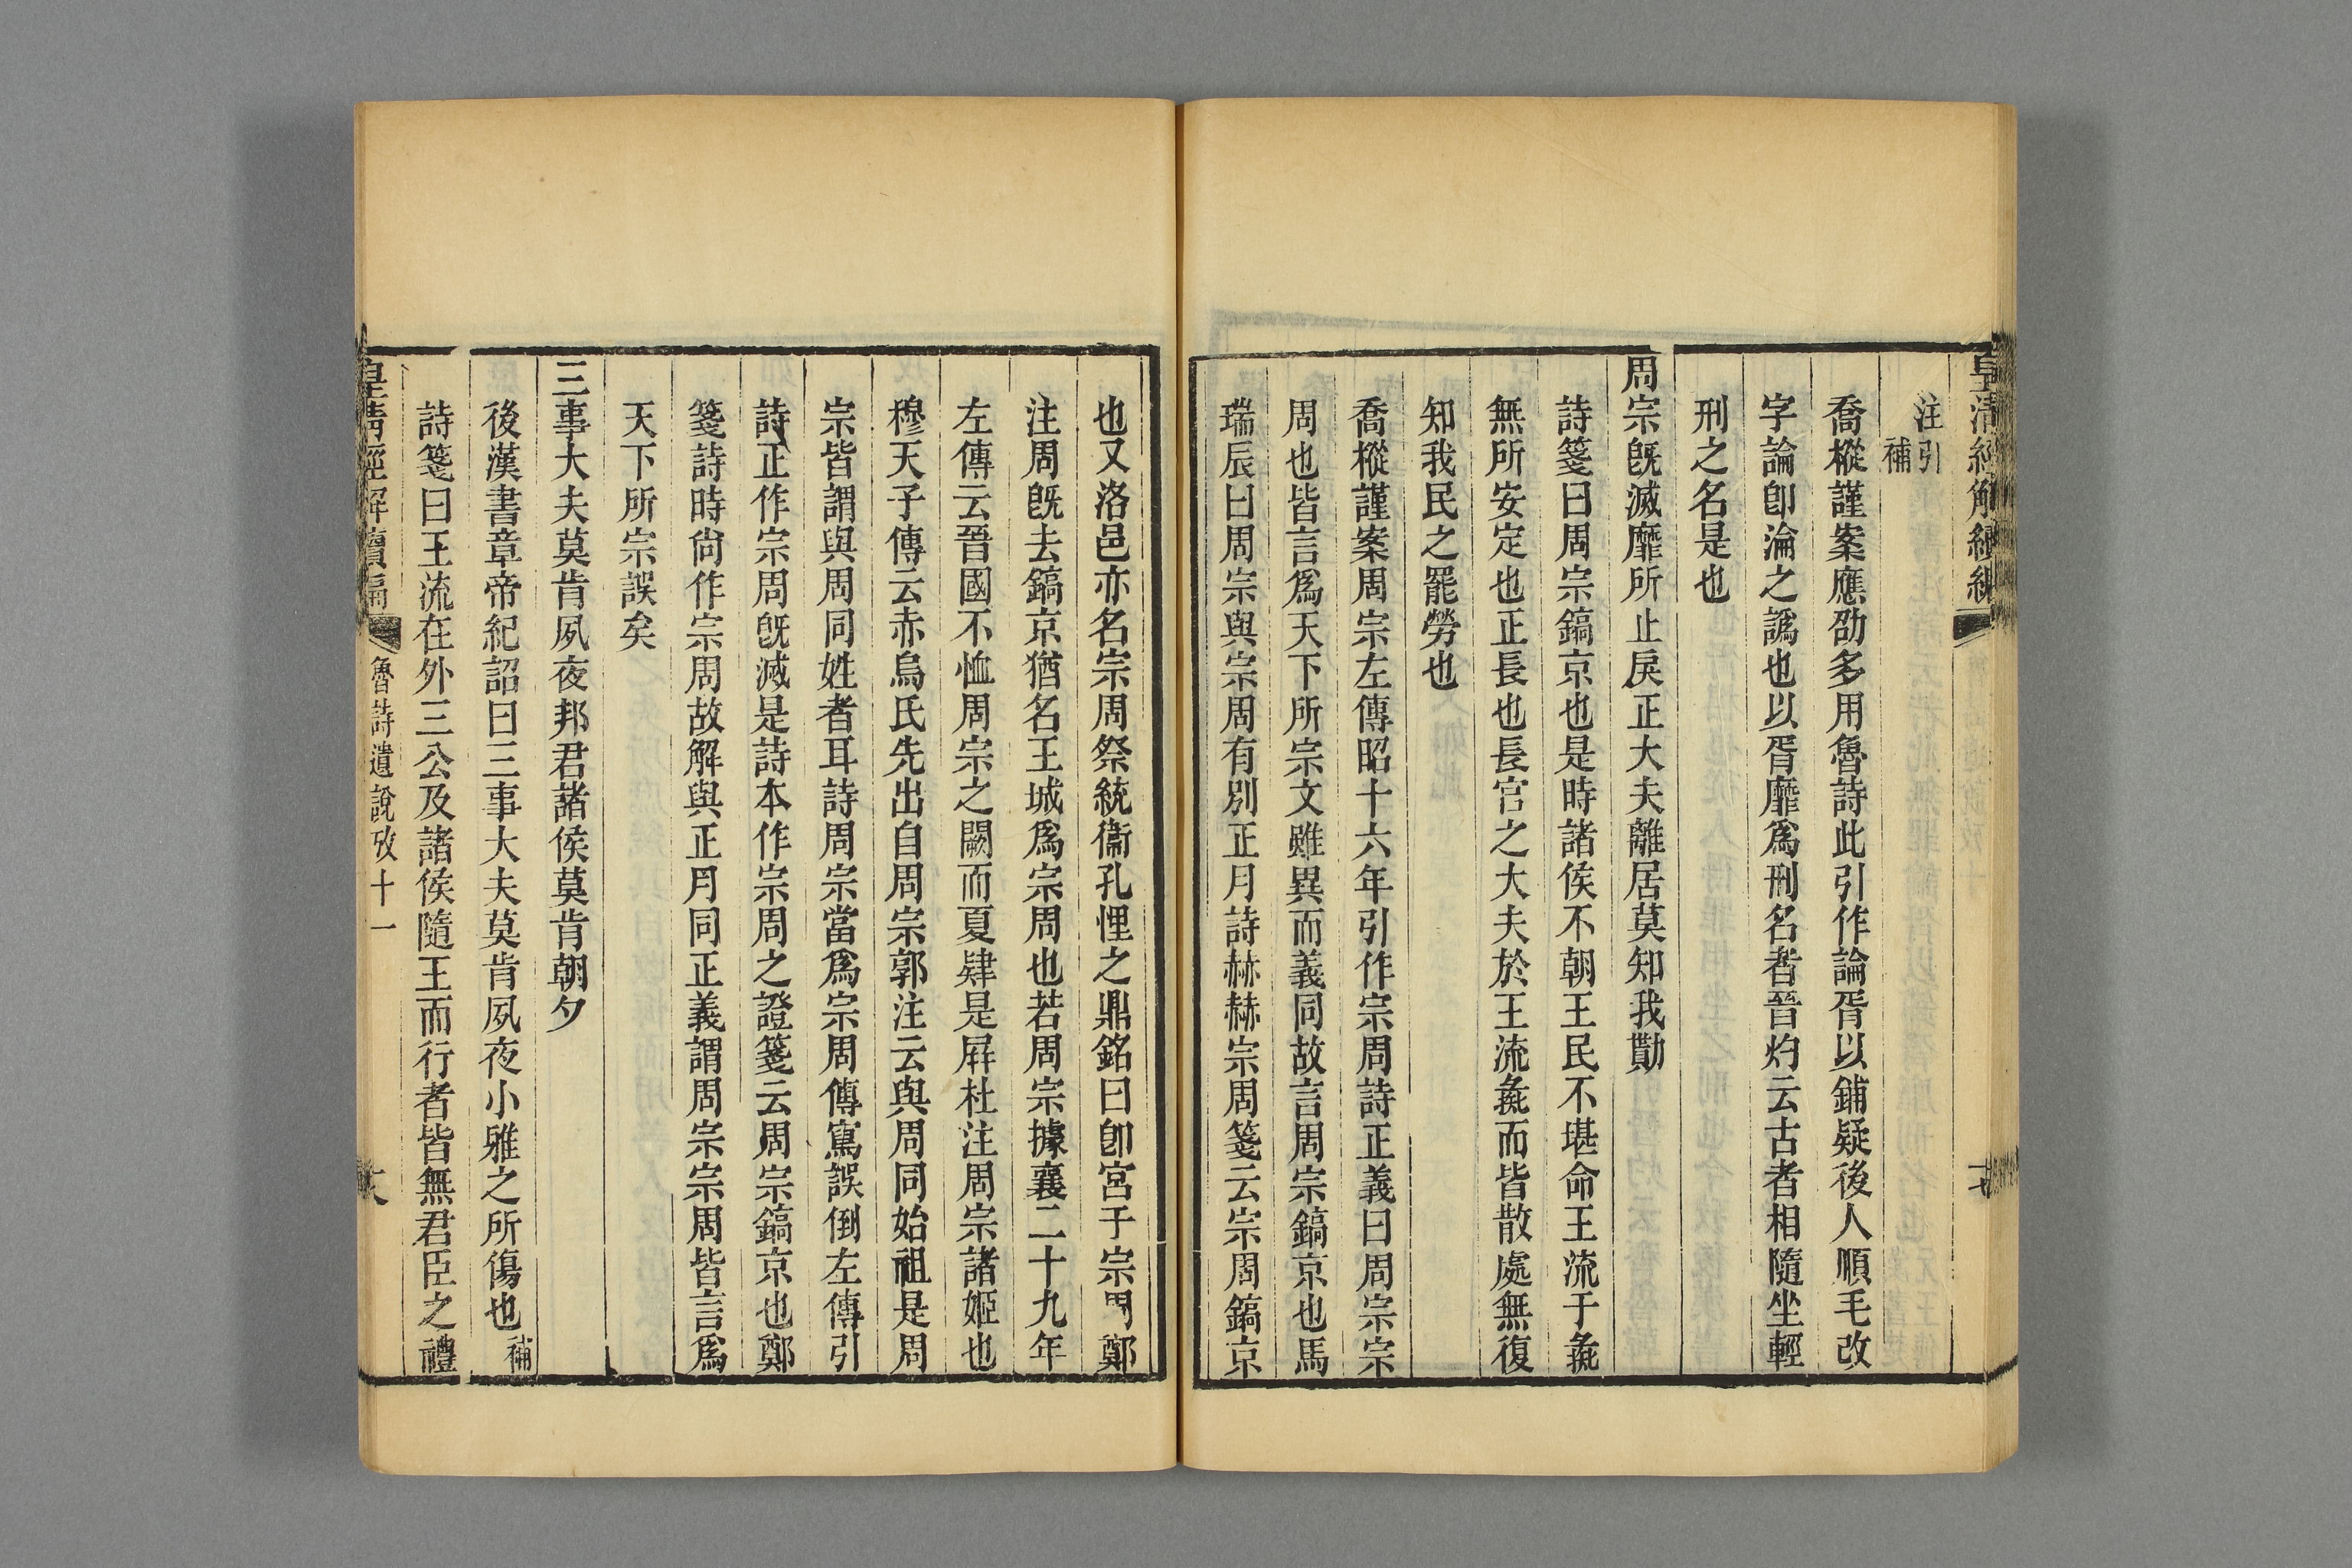 皇清經解續編
十七
注引
補
喬樅謹案應劭多用魯詩此引作論胥以鋪疑後人順毛改
字論卽淪之譌也以胥靡爲刑名者晉灼云古者相隨坐輕
刑之名是也
周宗旣滅靡所止戾正大夫離居莫知我勩
詩箋曰周宗鎬京也是時諸侯不朝王民不堪命王流于彘
無所安定也正長也長官之大夫於王流彘而皆散處無復
知我民之罷勞也
喬樅謹案周宗左傳昭十六年引作宗周詩正義曰周宗宗
周也皆言爲天下所宗文雖異而義同故言周宗鎬京也馬
瑞辰曰周宗與宗周有別正月詩赫赫宗周箋云宗周鎬京
也又洛邑亦名宗周祭統衞孔悝之鼎銘曰卽宮于宗周鄭
注周旣去鎬京猶名王城爲宗周也若周宗據襄二十九年
左傳云晉國不恤周宗之闕而夏肄是屛杜注周宗諸姬也
穆天子傳云赤烏氏先出自周宗郭注云與周同始祖是周
宗皆謂與周同姓者耳詩周宗當爲宗周傳寫誤倒左傳引
詩正作宗周旣滅是詩本作宗周之證箋云周宗鎬京也鄭
箋詩時尙作宗周故解與正月同正義謂周宗宗周皆言爲
天下所宗誤矣
三事大夫莫肯夙夜邦君諸侯莫肯朝夕
後漢書章帝紀詔曰三事大夫莫肯夙夜小雅之所傷也補
詩箋曰王流在外三公及諸侯隨王而行者皆無君臣之禮
皇清經解續編
魯詩遺說攷十一
大